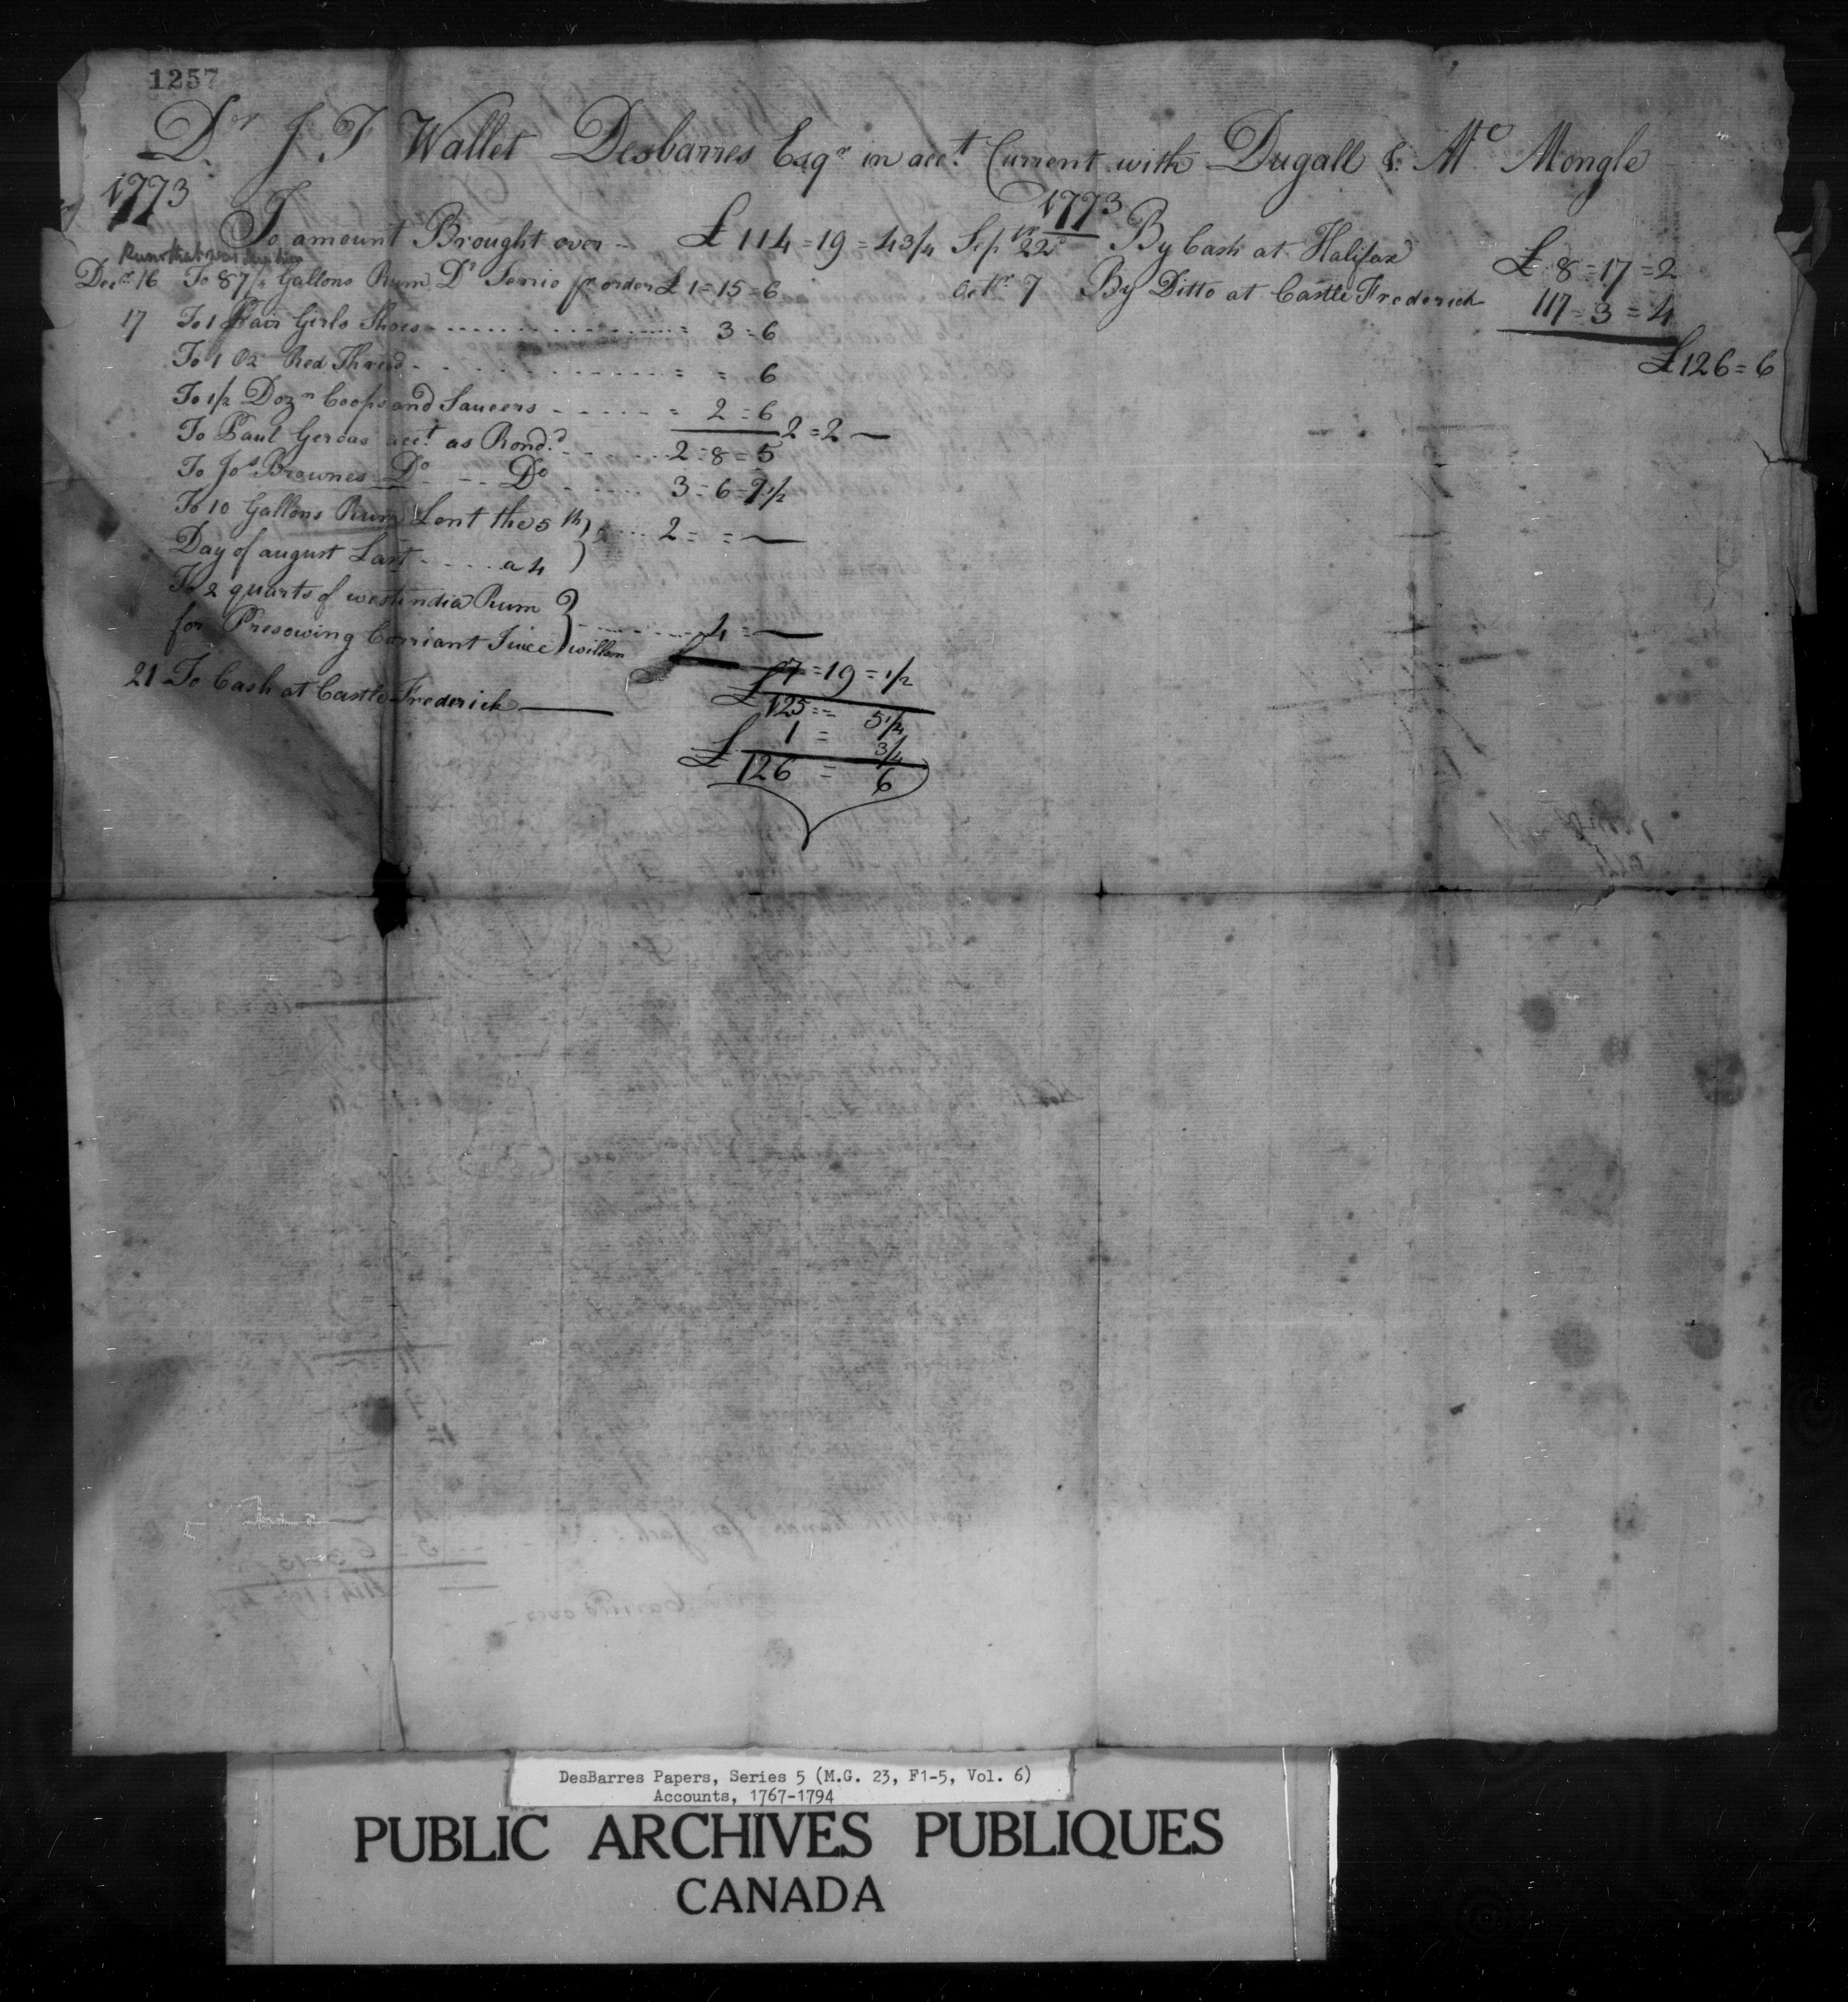 1257
Dr. J. F Wallet Desbarres Esqr in acct. Current with Dugall & Mc Mongle
1773
To amount Brought over £ 114=19=4 3/4
Rum that was
Decr 16 To 8 7/8 Gallons Rum Dr pr order £ 1=15=6
17 To 1 Pair Girls Shoes = 3=6
To 1 Oz Red Thread = = 6
To 1/2 Dozn Coops and Saucers = 2=6
2=2 —
To Paul acct. as Rend.d 2=8=5
To Jos Brownes Do Do 3=6=7 1/2
To 10 Gallons Rum Lent the 5th
Day of august Last a 4 2= = —
To 2 quarts of westindia Rum
for Presowing Corriant Juice willm 4=—
£ 7=19=1/2
£ 125== 5 1/4
21 To Cash at Castle Frederick — 1= 3/4
£ 126 = 6
1773
Sepr 22d By Cash at Halifax £ 8=17=2
Octr 7 By Ditto at Castle Frederick 117=3=4
£126=6
DesBarres Papers, Series 5 (M.G. 23, F1-5, Vol. 6)
Accounts, 1767-1794
PUBLIC ARCHIVES PUBLIQUES
CANADA